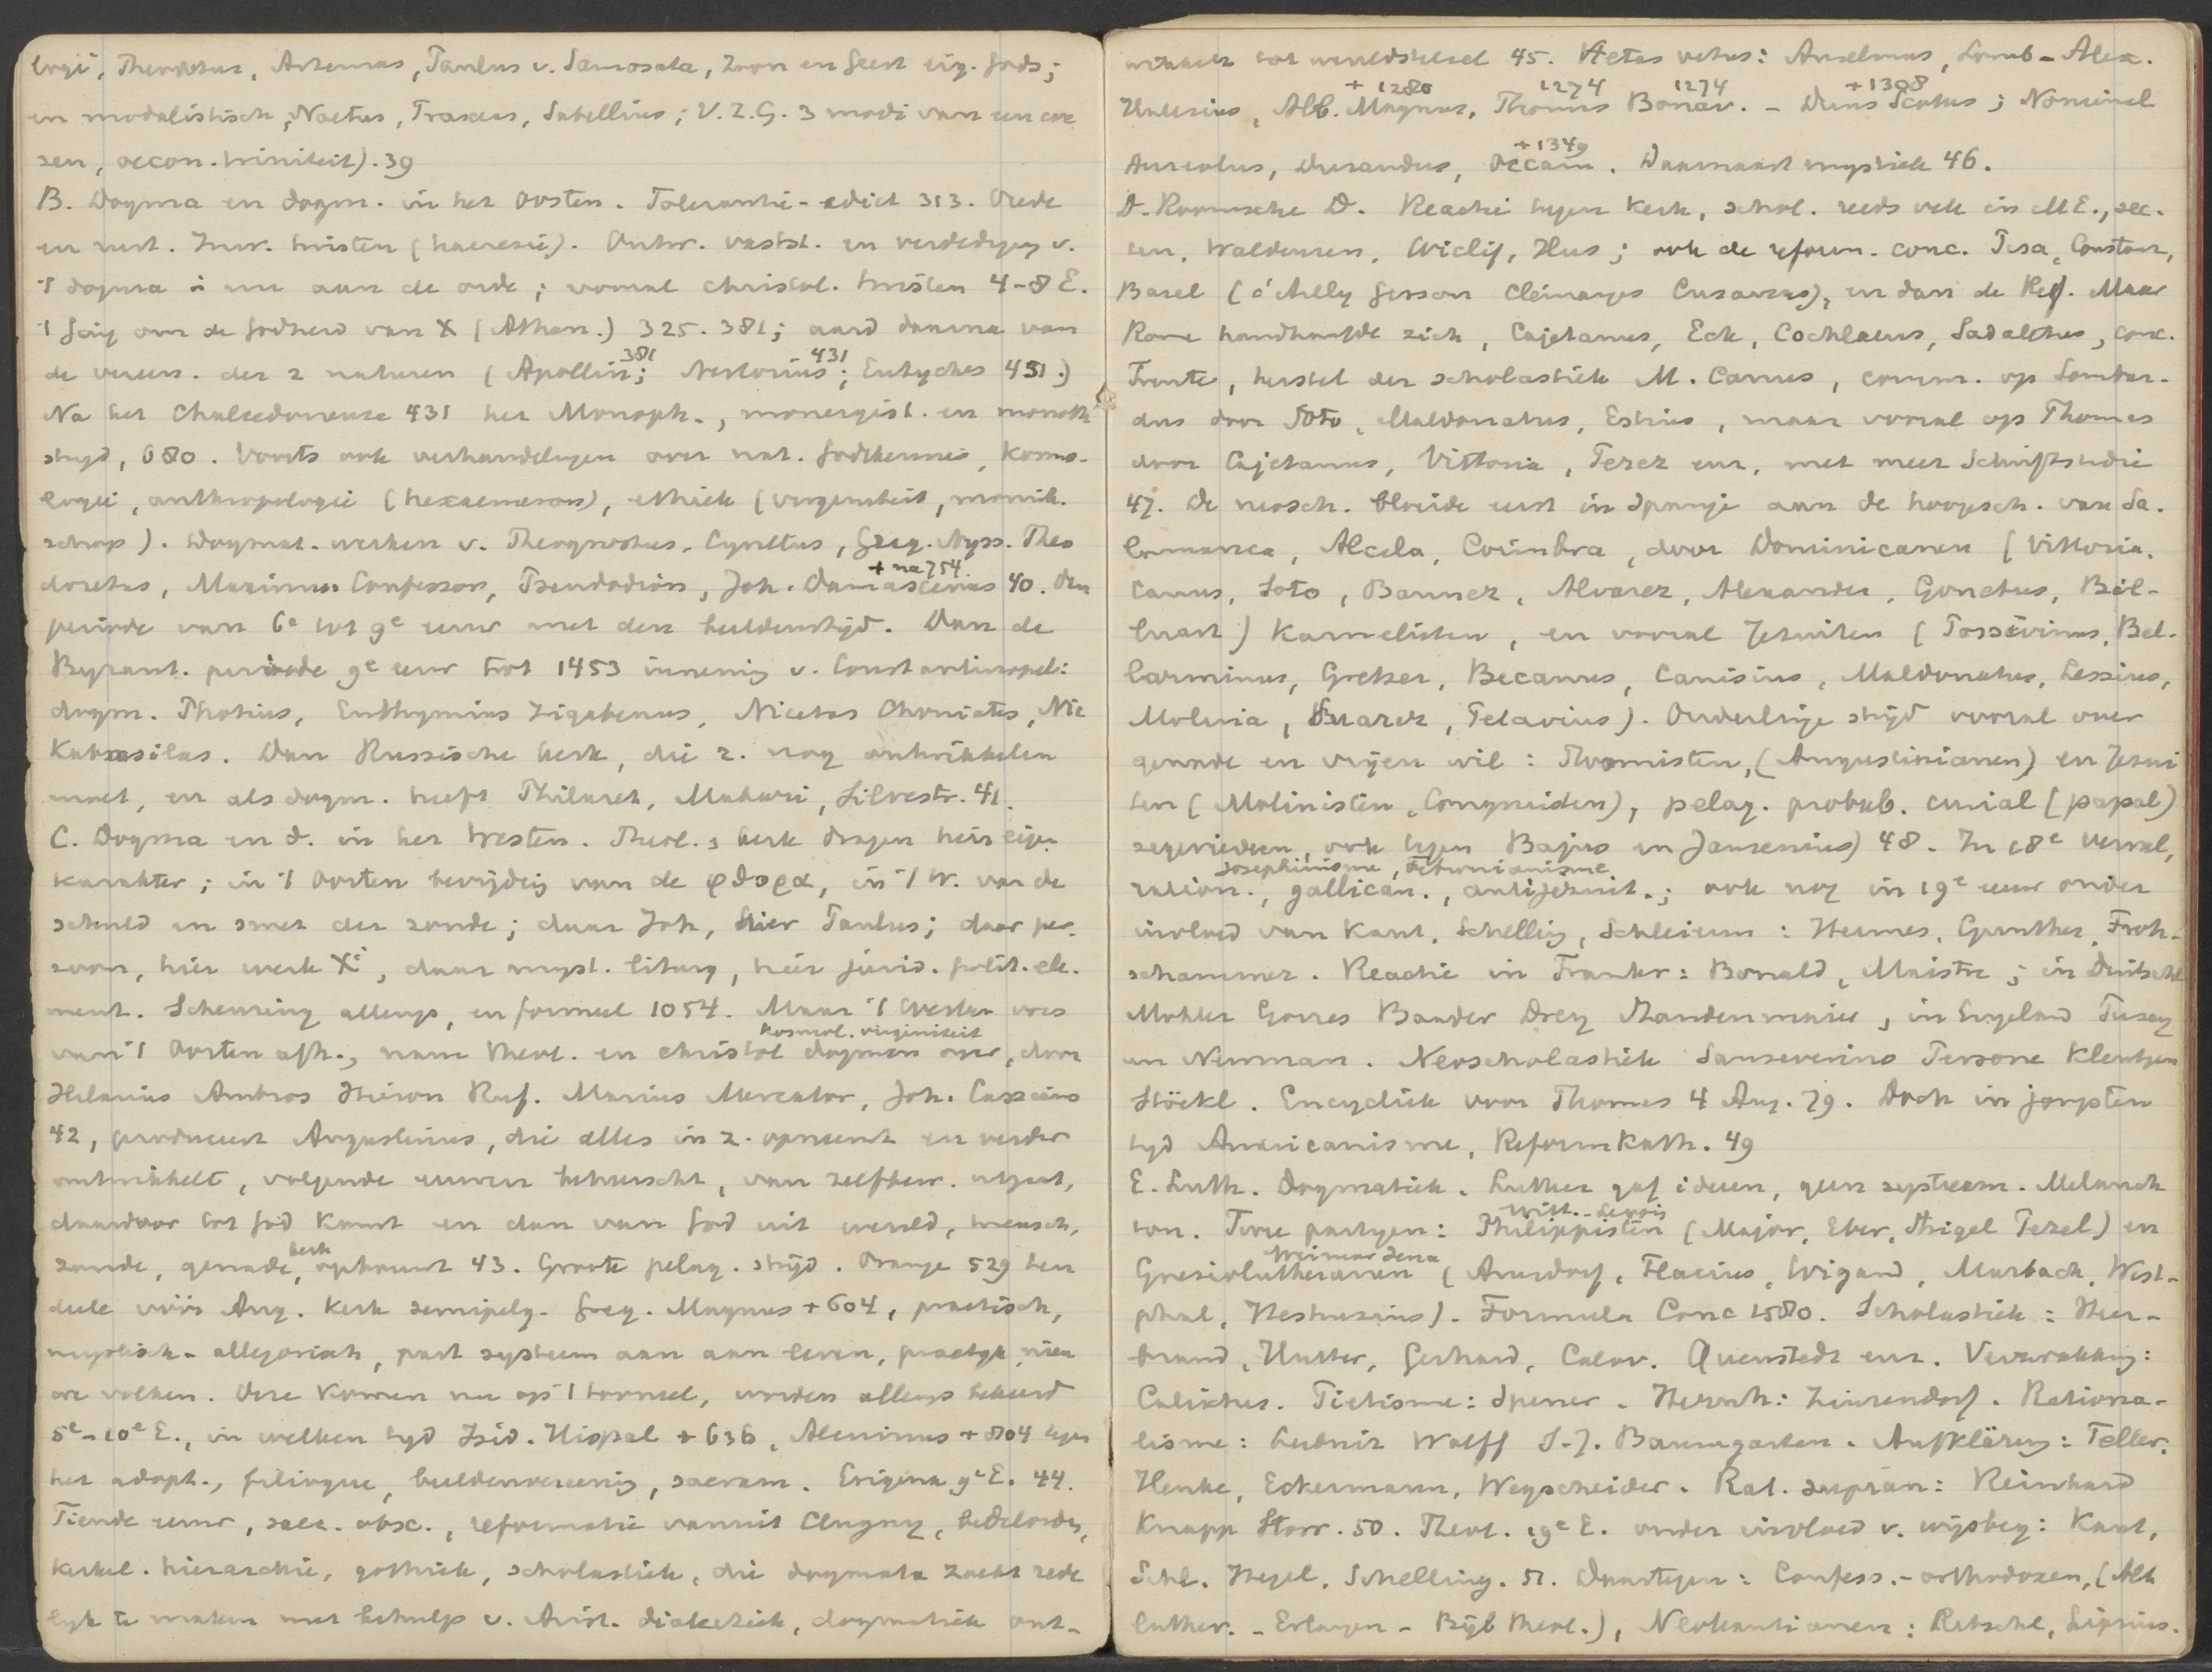 logi, Theodotus, Artemas, Paulus v. Samosata, Zoon en Geest eig. Gods;
en modalistisch, Noetus, Praxeas, Sabellius; V.Z.G. 3 modi van een
zen, oecon. triniteit). 39
B. Dogma en dogm. in het Oosten. Tolerantie-edict 313. Vrede
en rust. Inw. twisten (haeresie). Ontw. vastst. en verdedigen v.
't dogma is nu aan de orde; vooral christol. twisten 4-8 E.
't ging om de Godheid van X (Athan.) 325. 381; aard daarna van
de vereen. der 2 naturen (Apollin; 381 Nestorius; 431 Eutyches 451.)
Na het Chalcedonense 431 het Monoph., monergist. en monoth
strijd, 680. Voorts ook verhandelingen over nat. Godskennis, kosmo-
logie, anthropologie (hexaemeron), ethiek (virginiteit, monnik-
schap). Dogmat. werken v. Theognostus, Cyrillus, Greg. Nyss. Theo
doretus, Maximus Confessor, Pseudodion, Joh. Damascenus + na 754. 40. Den
periode van 6e tot 9e eeuw met den beeldenstrijd. Dan de
Byzant. periode 9e eeuw tot 1453 inneming v. Constantinopel:
dogm. Photius, Euthymius Zigabenus, Nicetas Choniates, Nic
Kabasilas. Dan Russische kerk, die z. nog ontwikkelen
moet, en als dogm. heeft Philaret, Makari, Silvestr. 41.
C. Dogma en d. in het Westen. Theol. & kerk dragen hier eigen
karakter; in 't Oosten bevrijding van de φθορα, in 't W. van de
schuld en smet der zonde; daar Joh, hier Paulus; daar per-
soon, hier werk Xi, daar myst. liturg, hier jurid. polit. ele-
ment. Scheuring allengs, en formeel 1054. Maar 't Westen was
van 't Oosten afh., nam theol. en christol kosmol. virginiteit dogmen over, door
Hilarius Ambros Hieron Ruf. Marius Mercator, Joh. Cassianus
42, produceert Augustinus, die alles in z. opneemt en verder
ontwikkelt, volgende eeuwen beheerscht, van zelfbew. uitgaat,
daardoor tot God komt en dan van God uit wereld, mensch,
zonde, genade, kerk opbouwt 43. Groote pelag. strijd. Orange 529 ten
deele vóór Aug. Kerk semipelg. Greg. Magnus + 604, practisch,
mystisch-allegorisch, past systeem aan aan leven, practijk, nieu
we volken. Deze komen nu op 't tooneel, worden allengs bekeerd
5e-10e E., in welken tijd Isid. Hispal + 636, Alcuinus + 804 tegen
het adopt., filioque, beeldenvereering, sacram. Erigena 9e E. 44.
Tiende eeuw, saec. obsc., reformatie vanuit Clugny, bedelorden,
kerkel. hierarchie, gothiek, scholastiek, die dogmata zocht rede
lijk te maken met behulp v. Arist. dialektiek, dogmatiek ont-
wikkelt tot wereldstelsel 45. Aetas vetus: Anselmus, Lomb- Alex.
Halesius, Alb. Magnus, + 1280 Thomas 1274 Bonav. 1274 - Duns Scotus + 1308; Nominal
Aureolus, Durandus, Occam + 1349. Daarnaast mystiek 46.
D. Roomsche D. Reactie tegen kerk, schol. reeds vele in ME., sec-
ten, Waldenzen, Wiclif, Hus; ook de reform. conc. Pisa, Constanz,
Basel (d'Ailly Gerson Clémanges Cusanus), en dan de Ref. Maar
Rome handhaafde zich, Cajetanus, Eck, Cochlaeus, Sadoletus, conc.
Trente, herstel der scholastiek M. Canus, comm. op Lombar-
dus door Soto, Maldonatus, Estius, maar vooral op Thomas
door Cajetanus, Vittoria, Perez enz, met meer Schriftstudie
47. De neosch. bloeide eerst in Spanje aan de hoogesch. van Sa-
lamanca, Alcala, Coimbra, door Dominicanen (Vittoria,
Canus, Soto, Bannez, Alvarez, Alexander, Gonetus, Bil-
luart) Karmelieten, en vooral Jezuiten (Possevinus, Bel-
larminus, Gretser, Becanus, Canisius, Maldonatus, Lessius,
Molina, Suarez, Petavius). Onderlinge strijd vooral over
genade en vrijen wil: Thomisten, (Augustinianen) en Jezui
ten (Molinisten, Congruisten), pelag. probab. curial (papal)
zegevierden, ook tegen Bajus en Jansenius) 48. In 18e verval,
ration., Josephinisme, Febronianisme gallican., antijezuit.; ook nog in 19e eeuw onder
invloed van Kant, Schelling, Schleierm: Hermes, Gunther, Froh-
schammer. Reactie in Frankr: Bonald, Maistre; in Duitschl
Mohler Gorres Baader Drey Staudenmaier, in Engeland Pusey
en Newman. Neoscholastiek Sanseverino Perrone Kleutgen
Stöckl. Encycliek voor Thomas 4 Aug. 79. Doch in jongsten
tijd Americanisme, Reformkath. 49
E. Luth. Dogmatiek. Luther gaf ideeen, geen systeem. Melanch
ton. Twee partijen: Philippisten (Major, Eber, Strigel Pezel) en
Gnesiolutheranen Weimar Jena (Amsdorf, Flacius, Wigand, Marbach, West-
phal, Heshusius). Formula Conc 1580. Scholastiek: Heer-
brand, Hutter, Gerhard, Calov. Quenstedt enz. Verzwakking:
Calixtus. Pietisme: Spener. Hernh: Zinzendorf. Rationa-
lisme: Leibniz Wolff S.J. Baumgarten. Aufklärung: Teller,
Henke, Eckermann, Wegscheider. Rat. supran: Reinhard
Knapp Storr. 50. Theol. 19e E. onder invloed v. wijsbeg: Kant,
Schl. Hegel, Schelling. 51. Daartegen: Confess.-orthodoxen, (Alt
luther. - Erlangen - Bijb theol.), Neokantianen: Ritschl, Lipsius.